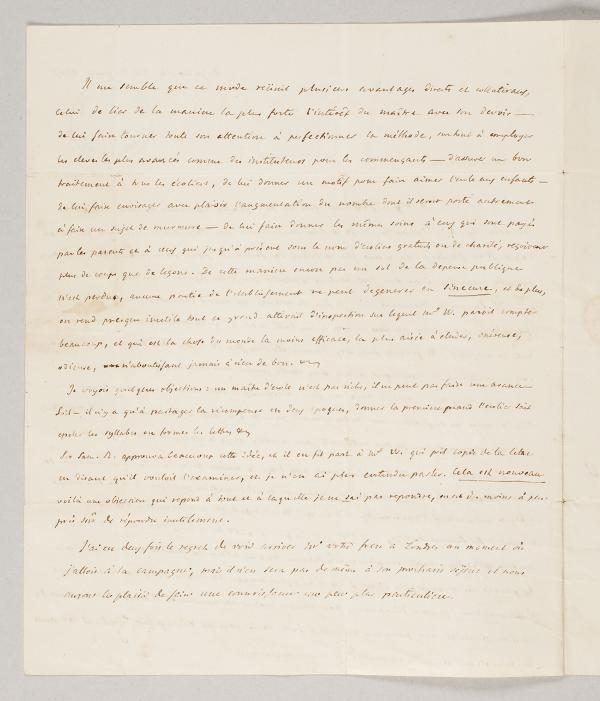 Il me semble que ce mode réünit plusieurs avantages directs et collatéraux,
celui de lier de la manière la plus forte l'intérêt du maître avec son devoir —
de lui faire tourner toute son attention à perfectionner la méthode, surtout à employer
les élèves les plus avancés comme des instituteurs pour les commençants — d'assurer un bon
traitement à tous les écoliers, de lui donner un motif pour faire aimer l'école aux enfants —
de lui faire envisager avec plaisir l'augmentation du nombre dont il seroit porté autrement
à faire un sujet de murmure — de lui faire donner les mêmes soins à ceux qui sont payés
par les parents et à ceux qui jusqu'à présent sous le nom d'écoliers gratuits ou de charité, reçoivent
plus de coups que de leçons. De cette manière encore pas un sol de la dépense publique
n'est perdu, aucune partie de l'établissement ne peut dégénérer en sinecure, et de plus,
on rend presque inutile tout ce grand attirail d'inspection sur lequel Mr W. paroit compter
beaucoup, et qui est la chose du monde la moins efficace, la plus aisée à éluder, onéreuse,
odieuse, n'aboutissant jamais à rien de bon. &c
Je voyois quelques objections : un maître d'école n'est pas riche, il ne peut pas faire une avance
Soit — il n'y a qu'à partager la récompense en deux époques, donner la première quand l'écolier sait
épeler les syllabes ou former les lettres &c
Sir Sam. R. approuva beaucoup cette idée, et il en fit part à Mr W. qui prit copie de la lettre
en disant qu'il vouloit l'examiner, et je n'en ai plus entendu parler. Cela est nouveau
voilà une objection qui répond à tout et à laquelle je ne sai pas répondre, ou est du moins à peu
près sûr de répondre inutilement.
J'ai eu deux fois le regret de voir arriver Mr votre frère à Londres au moment où
j'allois à la campagne, mais il n'en sera pas de même à son prochain séjour et nous
aurons le plaisir de faire une connoissance un peu plus particulière.